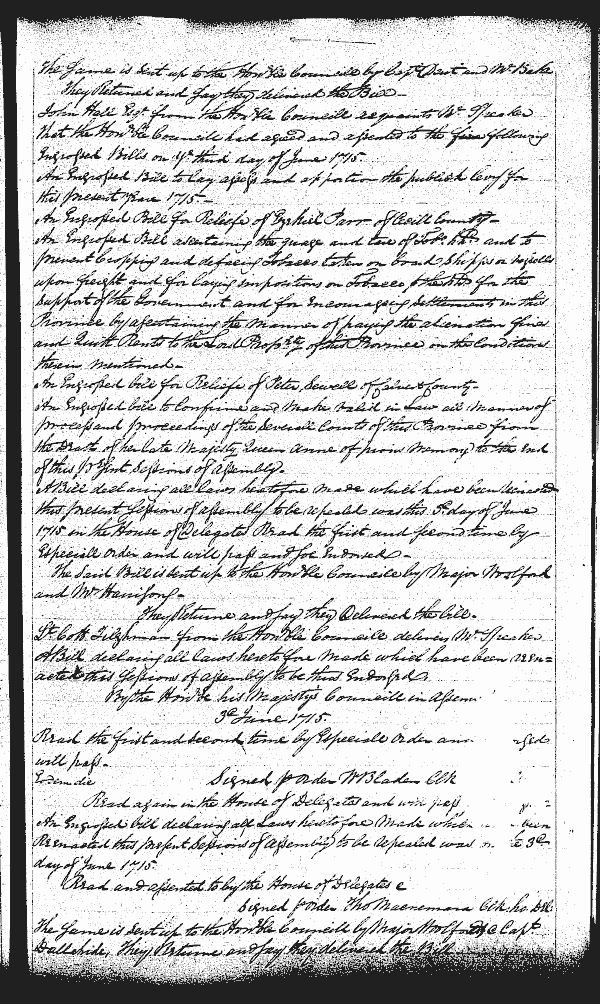 The Same is Sent up to the Hon:ble Councill by Capt Dent and Mr Beale
They Returne and Say they delivered the Bill
John Hall Esqr from the Hon:ble Councill acquaints Mr Speaker
that the Hon:ble Councill had agreed and assented to the five following
Engrossed Bills on ye third day of June 1715
An Engrossed Bill to Lay assess and apportion the publick levy for
this present Year 1715
An Engrossed Bill for Reliefe of Ezekiel Parr of Cecill County
An Engrossed Bill ascertaining the guage and tare of Tobo hhds and to
prevent Cropping and defacing Tobacco taken on board Ships or vessells
upon freight and for laying impositions on Tobacco for the
Support of the Government and for Encourageing Settlements in this
Province by ascertaining the Manner of paying the alienation fines
and Quitt Rents to the Lord Proprty of this Province on the Conditions
therein mentioned
An Engrossed bill for Reliefe of Peter Sewell of Calvert County
An Engrossed bill to Confirme and make valid in Law all Manner of
process and proceedings of the Severall Courts of this Province from
the Death of her late Majesty Queen Anne of pious Memory to the End
of this present Sessions of Assembly
A Bill declaring all laws heretofore made which have been Reinacted
this present Sessions of assembly to be repealed was this 3d day of June
1715 in the House of Delegates Read the first and Second time by
Especiall order and will pass and soe Endorsed
The Said Bill is sent up to the Hon:ble Councill by Major Woolford
and Mr Harrison
They Returne and say they Delivered the bill
Lt Coll Tilghman from the Hon:ble Councill delivers Mr Speaker
A Bill declaring all laws heretofore made which have been reen=
acted this Sessions of assembly to be thus Endorsed
By the Hon:ble his Majestys Councill in Assem
3d June 1715
Read the first and second time by Especiall Order and
will pass
Eodem die Signed p order W Bladen Clk
Read again in the House of Delegates and will pass
An Engrossed bill declaring all Laws heretofore Made which been
Reenacted this present Sessions of Assembly to be Repealed was 3d
day of June 1715
Read and assented to by the House of Delegates
Signed p order Tho Macnemara Clk ho Del
The Same is Sent up to the Hon:ble Councill by Major Woolford & Capt
Dallahide, They Returne and say they delivered the Bill